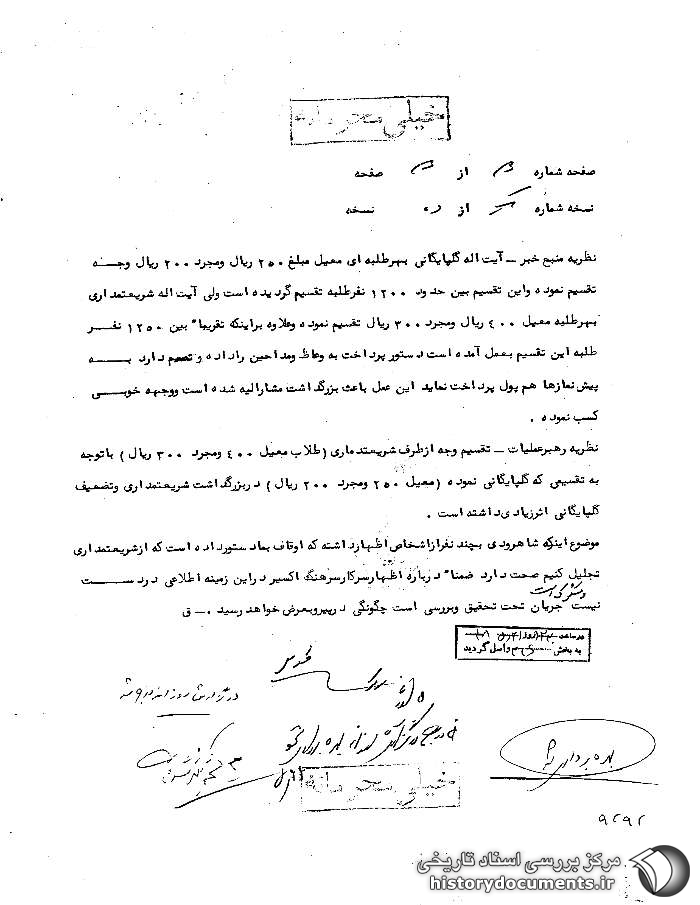 خیلی محرمانه
صفحه شماره از صفحه
نسخه شماره از نسخه
نظریه منبع خبر ــ آیت اله گلپایگانی بهرطلبه ای معیل مبلغ ۲۵۰ ریال ومجرد ۲۰۰ ریال وجه
تقسیم نموده واین تقسیم بین حدود ۱۲۰۰ نفرطلبه تقسیم گردیده است ولی آیت اله شریعتمداری
بهرطلبه معیل ۴۰۰ ریال ومجرد ۳۰۰ ریال تقسیم نموده وعلاوه براینکه تقریبا" بین ۱۲۵۰ نفر
طلبه این تقسیم بعمل آمده است دستور پرداخت به وعاظ ومداحین راداده و تصمیم دارد به
پیش نمازها هم پول پرداخت نماید این عمل باعث بزرگداشت مشارالیه شده است ووجهه خوبی
کسب نموده .
نظریه رهبرعملیات ــ تقسیم وجه ازطرف شریعتمداری (طلاب معیل ۴۰۰ ومجرد ۳۰۰ ریال ) باتوجه
به تقسیمی که گلپایگانی نموده (معیل ۲۵۰ ومجرد ۲۰۰ ریال) دربزرگداشت شریعتمداری وتضعیف
گلپایگانی اثرزیادی داشته است .
موضوع اینکه شاهرودی بچند نفرازاشخاص اظهارداشته که اوقاف بمادستورداده است که ازشریعتمداری
تجلیل کنیم صحت دارد ضمنا" درباره اظهارسرکارسرهنگ اکسیر دراین زمینه اطلاعی دردست
نیست جریان تحت تحقیق وبررسی است چگونگی درپیروبعرض خواهد رسید . ــ ق
درساعت روز
به بخش واصل گردید
خیلی محرمانه
۹۲۹۲
مرکز بررسی اسناد تاریخی
historydocuments.ir